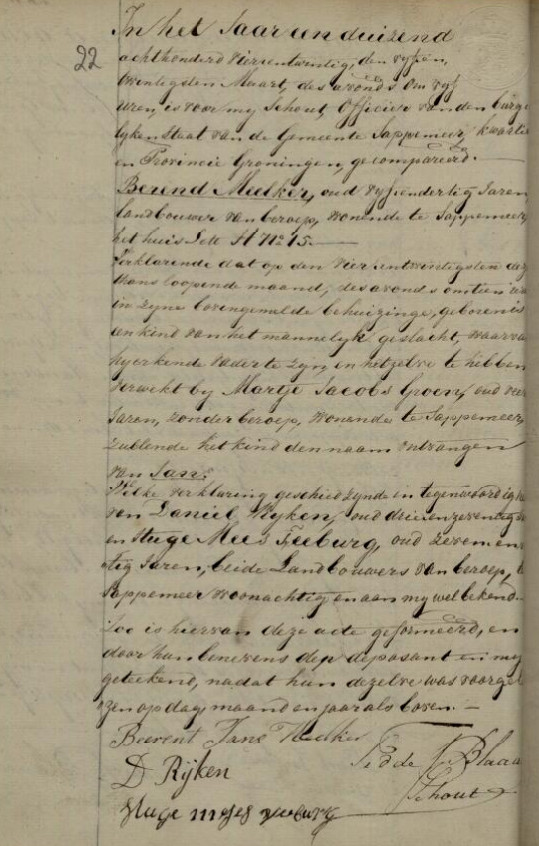 22
In het Jaar een duizend
achthonderd vierentwintig, den vyfen
twintigsten Maart, des avonds om vyf
uren, is voor my Schout, Officier van den burge
lyken Staat van de Gemeente Sappemeer, kwartie
en Provincie Groningen, gecompareerd.
Berend Meelker, oud vyfendertig Jaren
landbouwer van beroep, wonende te Sappemeer,
het huis Lett H No 15.
Verklarende dat op den vierentwintigsten dez
thans loopende maand, des avonds om tien ure
in zyne bovengemelde behuizinge, geboren is
een kind van het mannelyk geslacht, waarva
hy erkende vader te zyn, en hetzelve te hebben
verwekt by Martje Jacobs Groen, oud vier
Jaren, zonder beroep, wonende te Sappemeer,
zullende het kind den naam ontvangen
van Jan.
Welke verklaring geschied zynde in tegenwoordighe
van Daniel Ryken, oud drieenzeventig
en Huge Mees Feeburg, oud zevenen
tig Jaren, beide Landbouwers van beroep, te
Sappemeer woonachtig en aan my wel bekend.
Zoo is hiervan deze acte geformeerd, en
door hun benevens dep deposant en my
geteekend, nadat hun dezelve was voorgel
zen op dag, maand en jaar als boven.
Beerent Jans Meelker
D Rijken
Schout
Huge